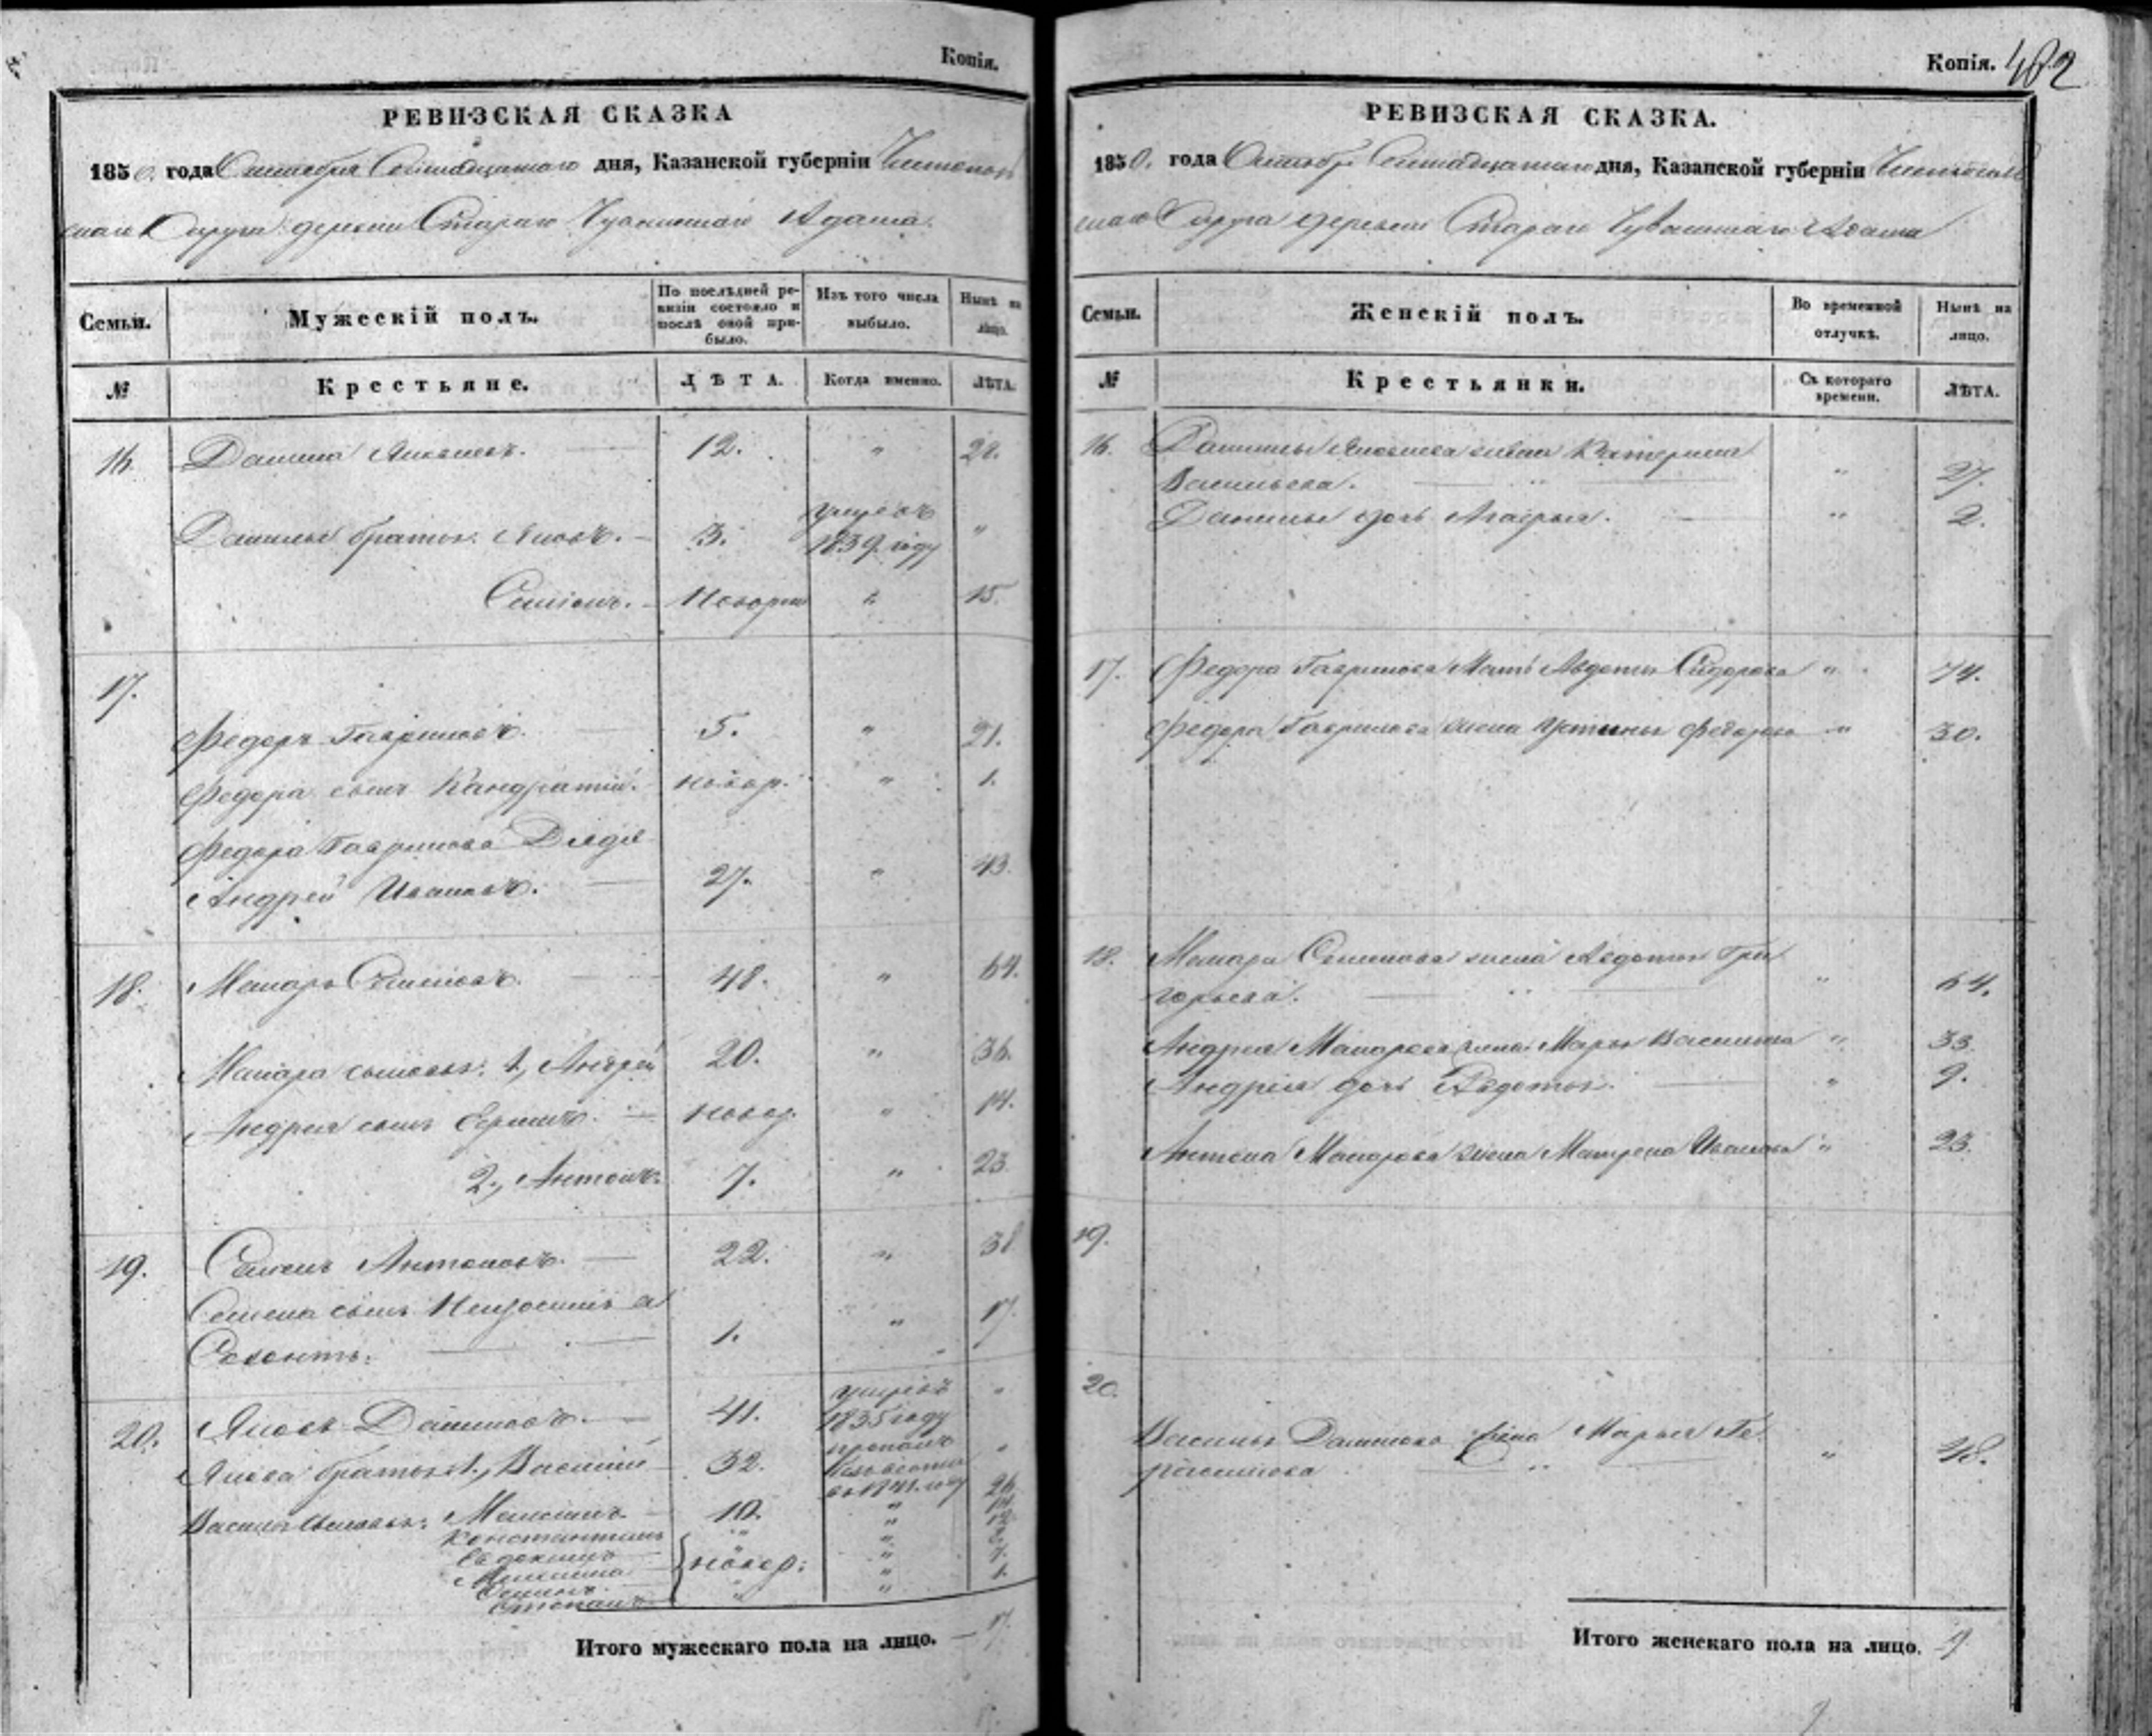 Копія.
РЕВИЗСКАЯ СКАЗКА
1850. года Октября Семнадцатаго дня, Казанской губерніи Чистополь
скаго Округа деревни Стараго Чувашскаго Адама.
Семьи. Мужескій полъ. По послѣдней ревизіи состояло и послѣ оной прибыло. Изъ того числа выбыло. Нынѣ на лицо.
№ Крестьяне. ЛѢТА. Когда именно. ЛѢТА.
16 Данила Яковлевъ. 12. " 28.
Данилы братья: Яковъ. 3. умре въ 1839 году "
Семіонъ. Новорж " 15.
17. Федоръ Гавриловъ. 5. " 21.
Федора сынъ Кандратій. новор. " 1.
Федора Гаврилова Дядя
Андрей Ивановъ. 27. " 43.
18. Макаръ Семеновъ. 48. " 64.
Макара сыновья: 1, Андрей 20. " 36.
Андрея сынъ новор. " 14.
2, Антонъ. 7. " 23.
19. Семенъ Антоновъ. 22. " 38
Семена сынъ
1. " 17.
20. Яковъ Даниловъ. 41. умре въ 1835 году "
Якова братья 1, Василій 32. "
въ 1841 году
Василья сыновья: Максимъ 10. " 26
Константинъ "
Евдокимъ новор. "
Микита "
Семенъ "
Степанъ " 1.
Итого мужескаго пола на лицо. 17.
Копія. 402
РЕВИЗСКАЯ СКАЗКА.
1850. года Октября Семнадцатаго дня, Казанской губерніи Чистополь
скаго Округа деревни Стараго Чувашскаго Адама
Семьи. Женскій полъ. Во временной отлучкѣ. Нынѣ на лицо.
№ Крестьянки. Съ котораго времени. ЛѢТА.
16. Данилы Яковлева жена Катерина
Васильева. " 27.
Данилы дочь " 2.
17. Федора Гаврилова Мать Авдотья Сидорова " 74.
Федора Гаврилова жена Устинья Федорова " 30.
18. Макара Семенова жена Авдотья Гри
горьева. " 64.
Андрея Макарова жена Марья Васильева " 33.
Андрея дочь Авдотья. " 9.
Антона Макарова жена Матрена Иванова " 23.
19.
20.
Василья Данилова жена Марья Ге
расимова " 48.
Итого женскаго пола на лицо. 9